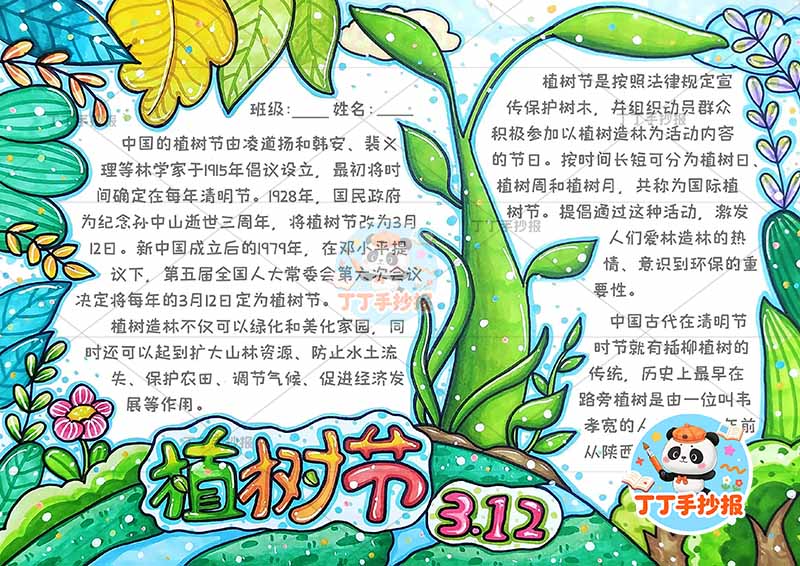 班级:____ 姓名:____
中国的植树节由凌道扬和韩安、裴义
理等林学家于1915年倡议设立，最初将时
间确定在每年清明节。1928年，国民政府
为纪念孙中山逝世三周年，将植树节改为3月
12日。新中国成立后的1979年，在邓小平提
议下，第五届全国人大常委会第六次会议
决定将每年的3月12日定为植树节。
植树造林不仅可以绿化和美化家园，同
时还可以起到扩大山林资源、防止水土流
失、保护农田、调节气候、促进经济发
展等作用。
植树节是按照法律规定宣
传保护树木，并组织动员群众
积极参加以植树造林为活动内容
的节日。按时间长短可分为植树日、
植树周和植树月，共称为国际植
树节。提倡通过这种活动，激发
人们爱林造林的热
情、意识到环保的重
要性。
中国古代在清明节
时节就有插柳植树的
传统，历史上最早在
路旁植树是由一位叫韦
孝宽的人 年前
从陕西
植树节
3.12
丁丁手抄报
丁丁手抄报
丁丁手抄报
丁丁手抄报
丁丁手抄报
丁丁手抄报